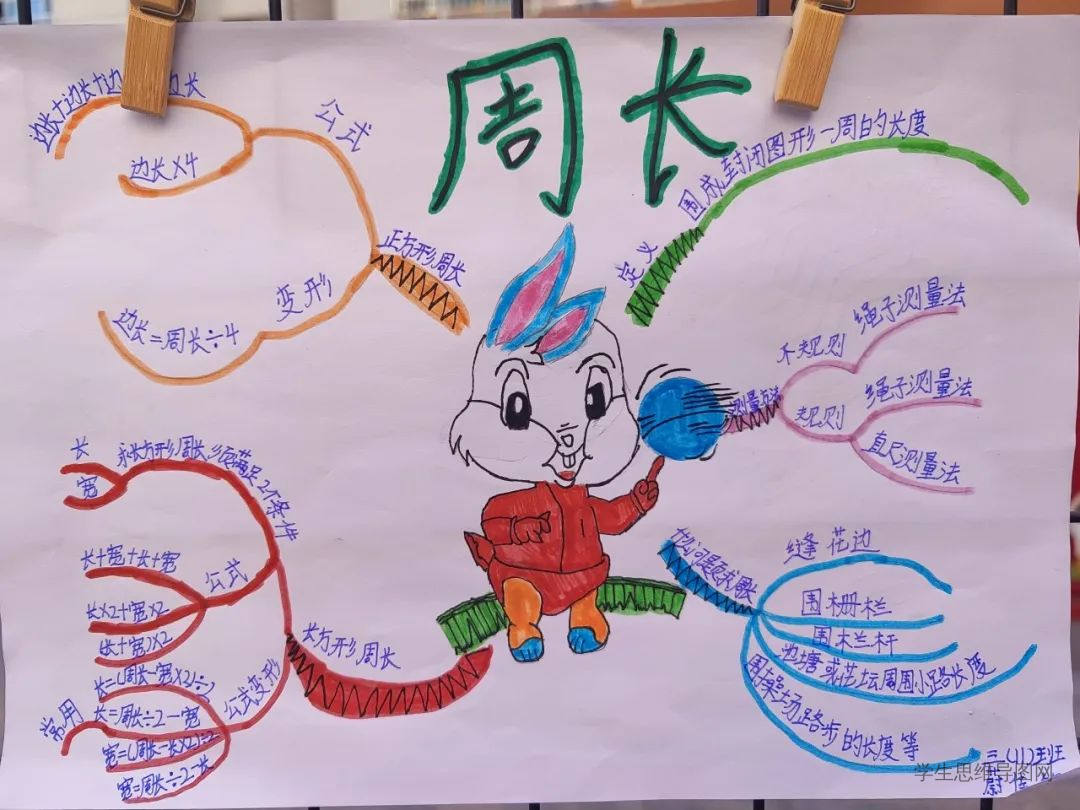 周长
定义
围成封闭图形一周的长度
测量方法
不规则
绳子测量法
规则
绳子测量法
直尺测量法
缝花边
围栅栏
围木兰杆
池塘或花坛周围小路长度
围操场路步的长度等
正方形周长
公式
边长+边长+边
边长
边长×4
变形
边长=周长÷4
长方形周长
求长方形周长必须满足2个条件
长
宽
公式
长+宽+长+宽
长×2+宽×2
(长+宽)×2
公式变形
常用
长=(周长-宽×2)÷2
长=周长÷2-宽
宽=(周长-长×2)÷2
宽=周长÷2-长
三(11)班
学生思维导图网